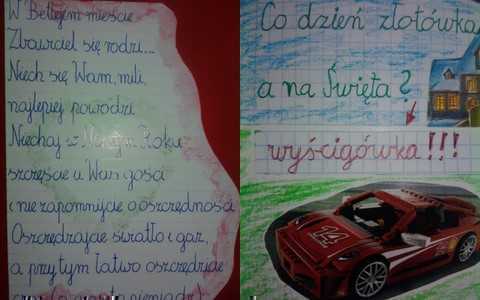 W Betlejem mieście
Zbawiciel się rodzi...
Niech się Wam, mili,
najlepiej powodzi.
Niechaj w Nowym Roku
szczęście u Was gości
i nie zapomnijcie o oszczędności.
Oszczędzajcie światło i gaz,
a przy tym łatwo oszczędzicie
Co dzień złotówka,
a na Święta?
wyścigówka!!!
14